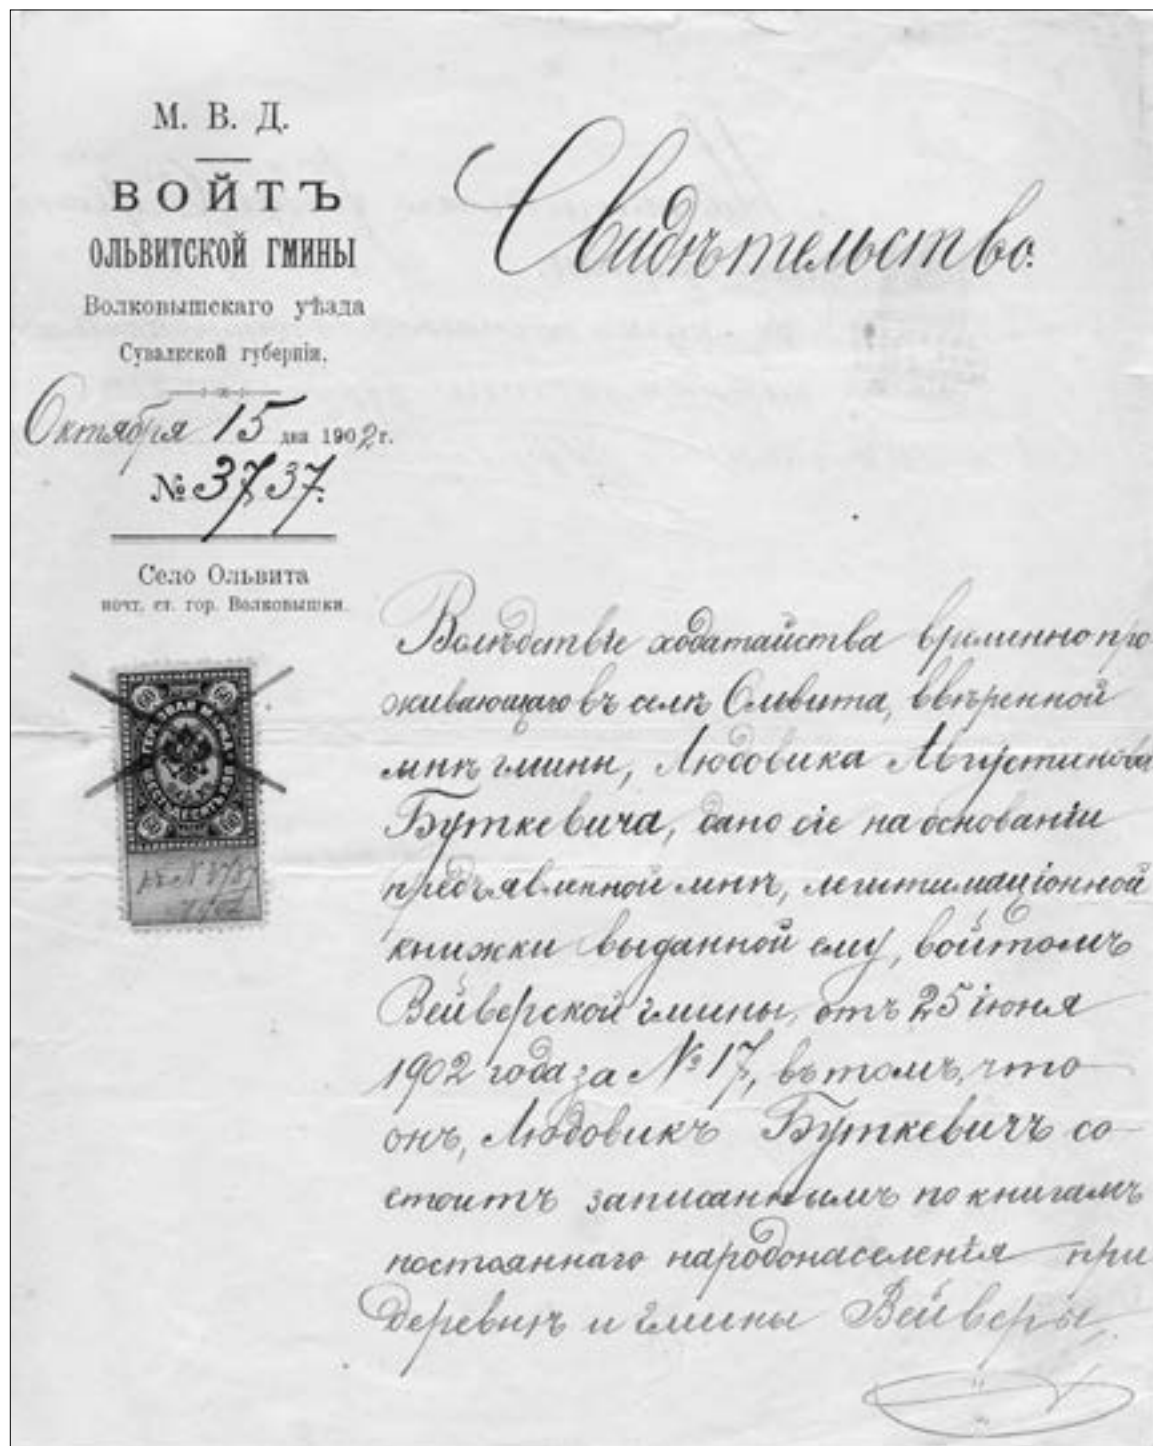 М. В. Д.
ВОЙТЪ
ОЛЬВИТСКОЙ ГМИНЫ
Волковышскаго уѣзда
Сувалкской губерніи.
Октября 15 дня 1902 г.
№ 3737.
Село Ольвита
почт. ст. гор. Волковышки.
Свидѣтельство.
60 60
ГЕРБОВАЯ МАРКА
ШЕСТЬДЕСЯТЪ КОП.
60 60
къ № 3737
1902
Вслѣдствіе ходатайства временно про-
живающаго въ селѣ Ольвита, ввѣренной
мнѣ гмины, Людовика Августинова
Буткевича, дано сіе на основаніи
предъявленной мнѣ, легитимаціонной
книжки выданной ему, войтомъ
Вейверской гмины, отъ 25 іюня
1902 года за № 17, въ томъ, что
онъ, Людовикъ Буткевичъ со-
стоитъ записаннымъ по книгамъ
постояннаго народонаселенія при
деревнѣ и гмины Вейверы,